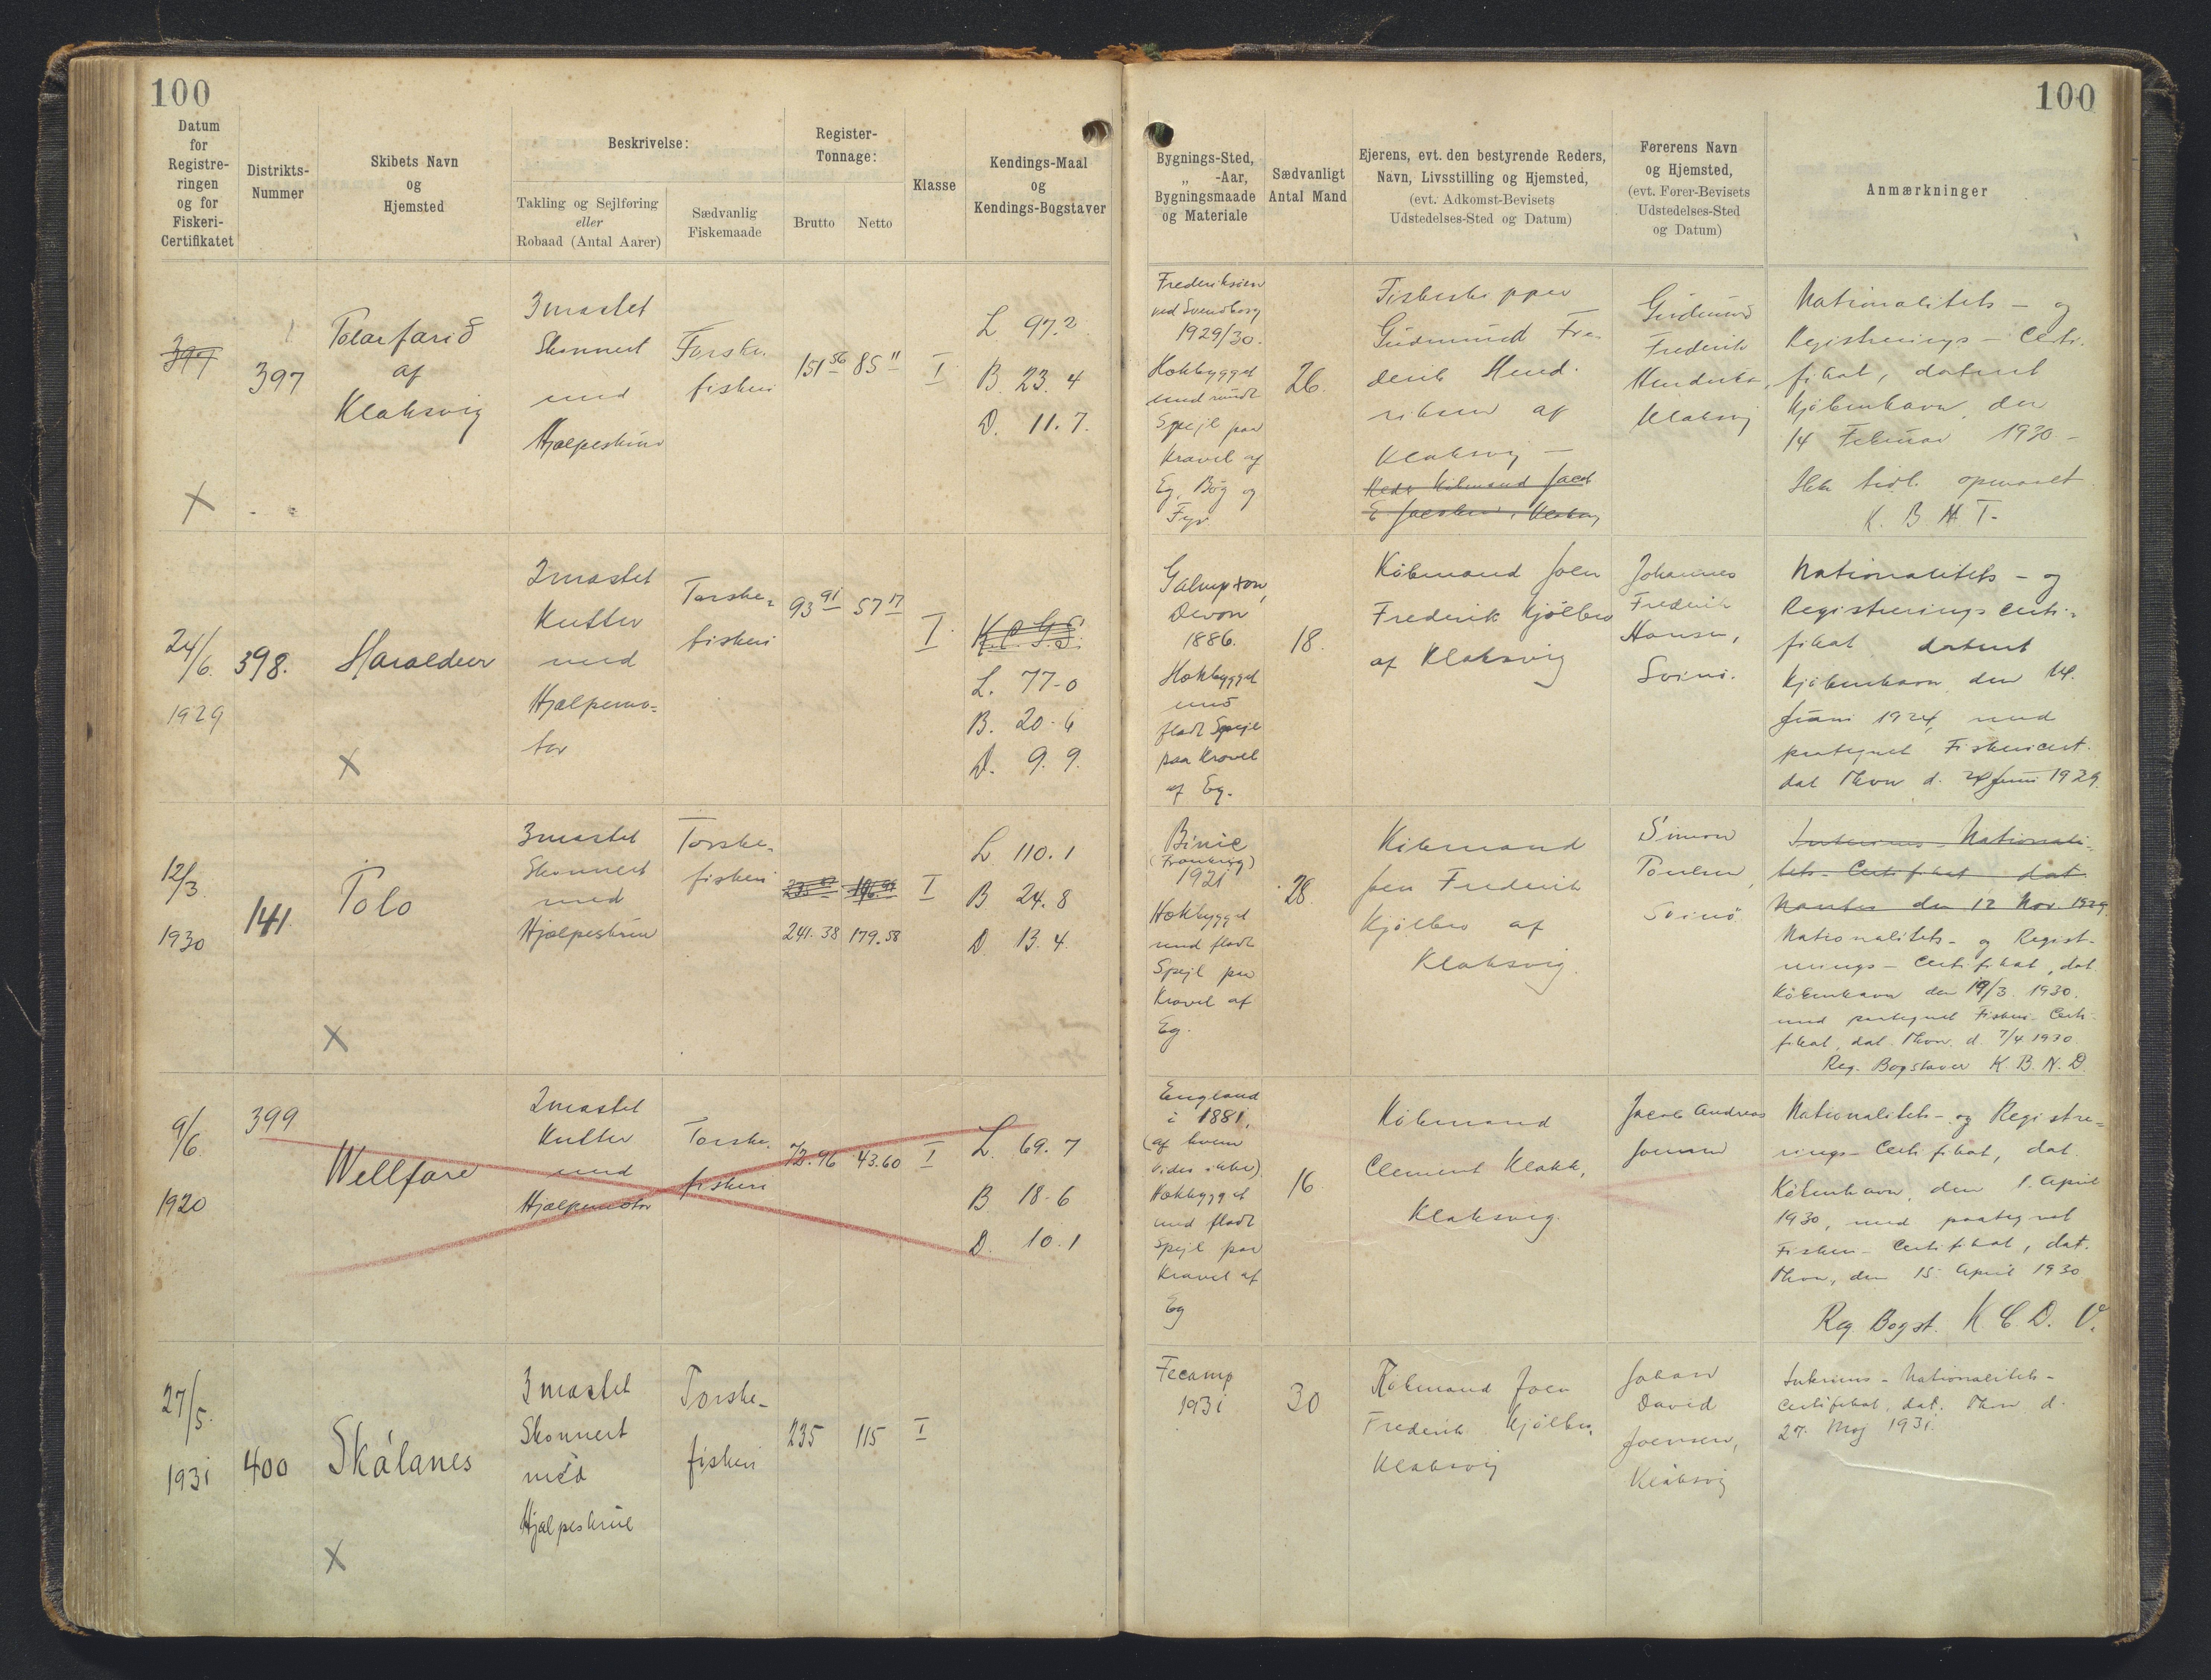 100
100
Datum
for
Registre-
ringen
og for
Fiskeri-
Certifikatet
Distrikts-
Nummer
Skibets Navn
og
Hjemsted
Beskrivelse:
Takling og Sejlføring
eller
Robaad (Antal Aarer)
Sædvanlig
Fiskemaade
Register-
Tonnage:
Brutto
Netto
Klasse
Kendings-Maal
og
Kendings-Bogstaver
Bygnings-Sted,
„ -Aar,
Bygningsmaade
og Materiale
Sædvanligt
Antal Mand
Ejerens, evt. den bestyrende Reders,
Navn, Livsstilling og Hjemsted,
(evt. Adkomst-Bevisets
Udstedelses-Sted og Datum)
Førerens Navn
og Hjemsted,
(evt. Fører-Bevisets
Udstedelses-Sted
og Datum)
Anmærkninger
397
397
X
Polarfarið
af
Klaksvig
3mastet
Skonnert
med
Hjælpeskrue
Torske-
fiskeri
151 56
85 11
I
L 97.2
B. 23.4
D. 11.7.
Frederiksöen
ved Svendborg
1929/30.
Hækbygget
med rundt
Spejl paa
Kravel af
Eg, Bög og
Fyr.
26.
Fiskeskipper
Gudmund Fre-
derik Hend-
riksen af
Klaksvig –
Köbmand Jacob
Gudmund
Frederik
Hendriksen,
Klaksvig
Nationalitets- og
Registrerings-Certi-
fikat, dateret
Kjöbenhavn, den
14 Februar 1930 –
opmaalt
K. B. H. T.
24/6.
1929
398.
X
Haraldur
2mastet
Kutter
med
Hjælpemo-
tor
Torske-
fiskeri
93 91
57 17
I.
K.C.G.S.
L. 77-0
B. 20-6
D. 9.9.
Galmpton,
Devon
1886.
Hækbygget
med
fladt Spejl
paa Kravel
af Eg.
18.
Köbmand Joen
Frederik Kjölbro
af Klaksvig
Johannes
Frederik
Hansen,
Svinö.
Nationalitets- og
Registrerings Certi-
fikat dateret
Kjöbenhavn den 14.
Juni 1924, med
paategnet Fiskericert.
dat Thvn d. 24 Juni 1929.
12/3.
1930
141.
X
Polo
3mastet
Skonnert
med
Hjælpeskrue
Torske-
fiskeri
241.38
179.58
I
L. 110.1
B 24.8
D. 13.4.
Binic
(Frankrig)
1921
Hækbygget
med fladt
Spejl paa
Kravel af
Eg.
28.
Köbmand
Joen Frederik
Kjölbro af
Klaksvig.
Simon
Poulsen,
Svinö
Interims-Nationali-
tets-Certifikat dat
Nantes den 12 Nov. 1929
Nationalitets- og Regist-
rerings-Certifikat, dat.
Köbenhavn den 19/3. 1930.
med paategnet Fiskeri-Certi-
fikat, dat. Thvn. d. 7/4 1930
Reg. Bogstaver K.B.N.D.
9/6.
1920
399
Wellfare
2mastet
Kutter
med
Hjælpemotor
Torske-
fiskeri
72.96
43.60
I
L. 69.7
B 18-6
D. 10.1
England
i 1881,
(af hvem
vides ikke).
Hækbygget
med fladt
Spejl paa
Kravel af
Eg
16.
Köbmand
Clement Klakk,
Klaksvig.
Jacob Andreas
Joensen
Nationalitets- og Registre-
rings-Certifikat, dat.
Köbenhavn, den 1. April
1930, med paategnet
Fiskeri-Certifikat, dat.
Thvn, den 15. April 1930
Reg Bogst. K.C.D.V.
27/5.
1931
400
X
Skálanes
3mastet
Skonnert
med
Hjælpeskrue
Torske-
fiskeri
235
115
I
Fecamp
1931
30
Köbmand Joen
Frederik Kjölbro,
Klaksvig
Johan
David
Joensen,
Klaksvig
Interims-Nationalitets-
Certifikat, dat. Thvn d.
27. Maj 1931.